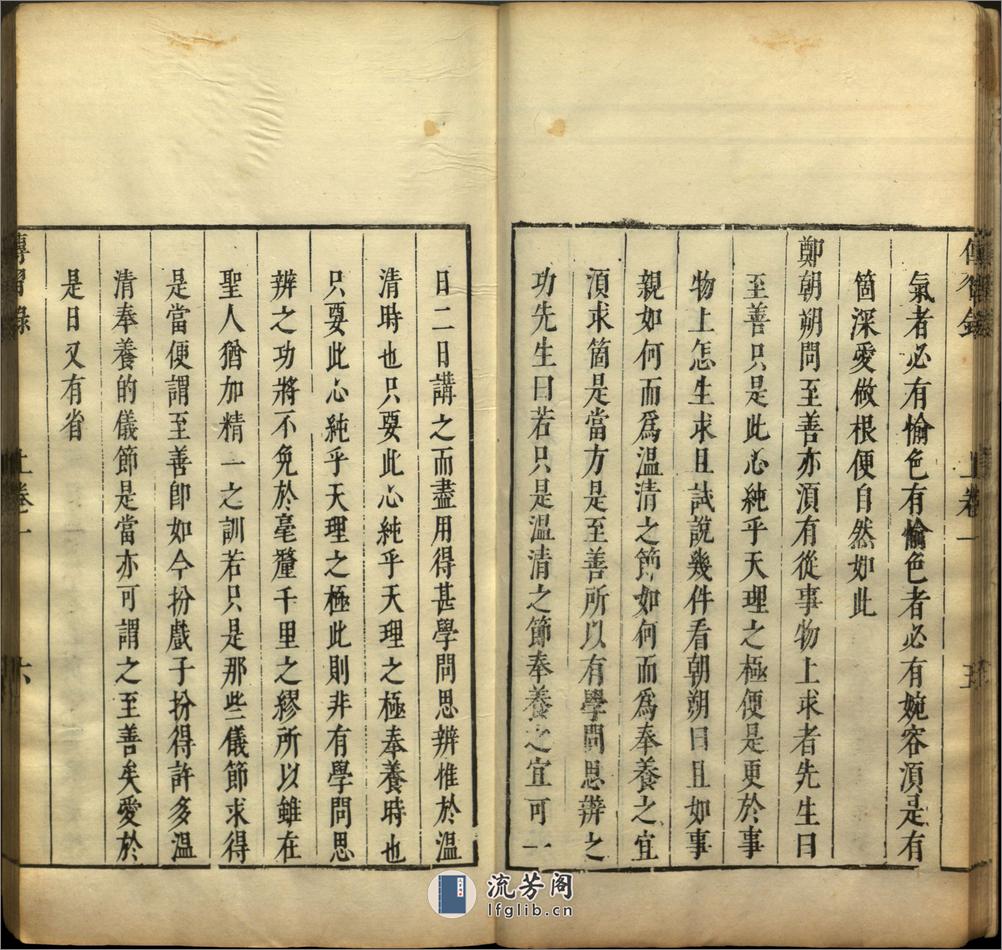 傳習錄 上卷一 五
氣者必有愉色有愉色者必有婉容湏是有
箇深愛做根便自然如此
鄭朝朔問至善亦湏有從事物上求者先生曰
至善只是此心純乎天理之極便是更於事
物上怎生求且試說幾件看朝朔曰且如事
親如何而爲温凊之節如何而爲奉養之宜
湏求箇是當方是至善所以有學問思辨之
功先生曰若只是温凊之節奉養之宜可一
日二日講之而盡用得甚學問思辨惟於温
凊時也只要此心純乎天理之極奉養時也
只要此心純乎天理之極此則非有學問思
辨之功將不免於毫釐千里之繆所以雖在
聖人猶加精一之訓若只是那些儀節求得
是當便謂至善卽如今扮戲子扮得許多温
凊奉養的儀節是當亦可謂之至善矣愛於
是日又有省
傳習錄 上卷一 六
流芳阁
lfglib.cn